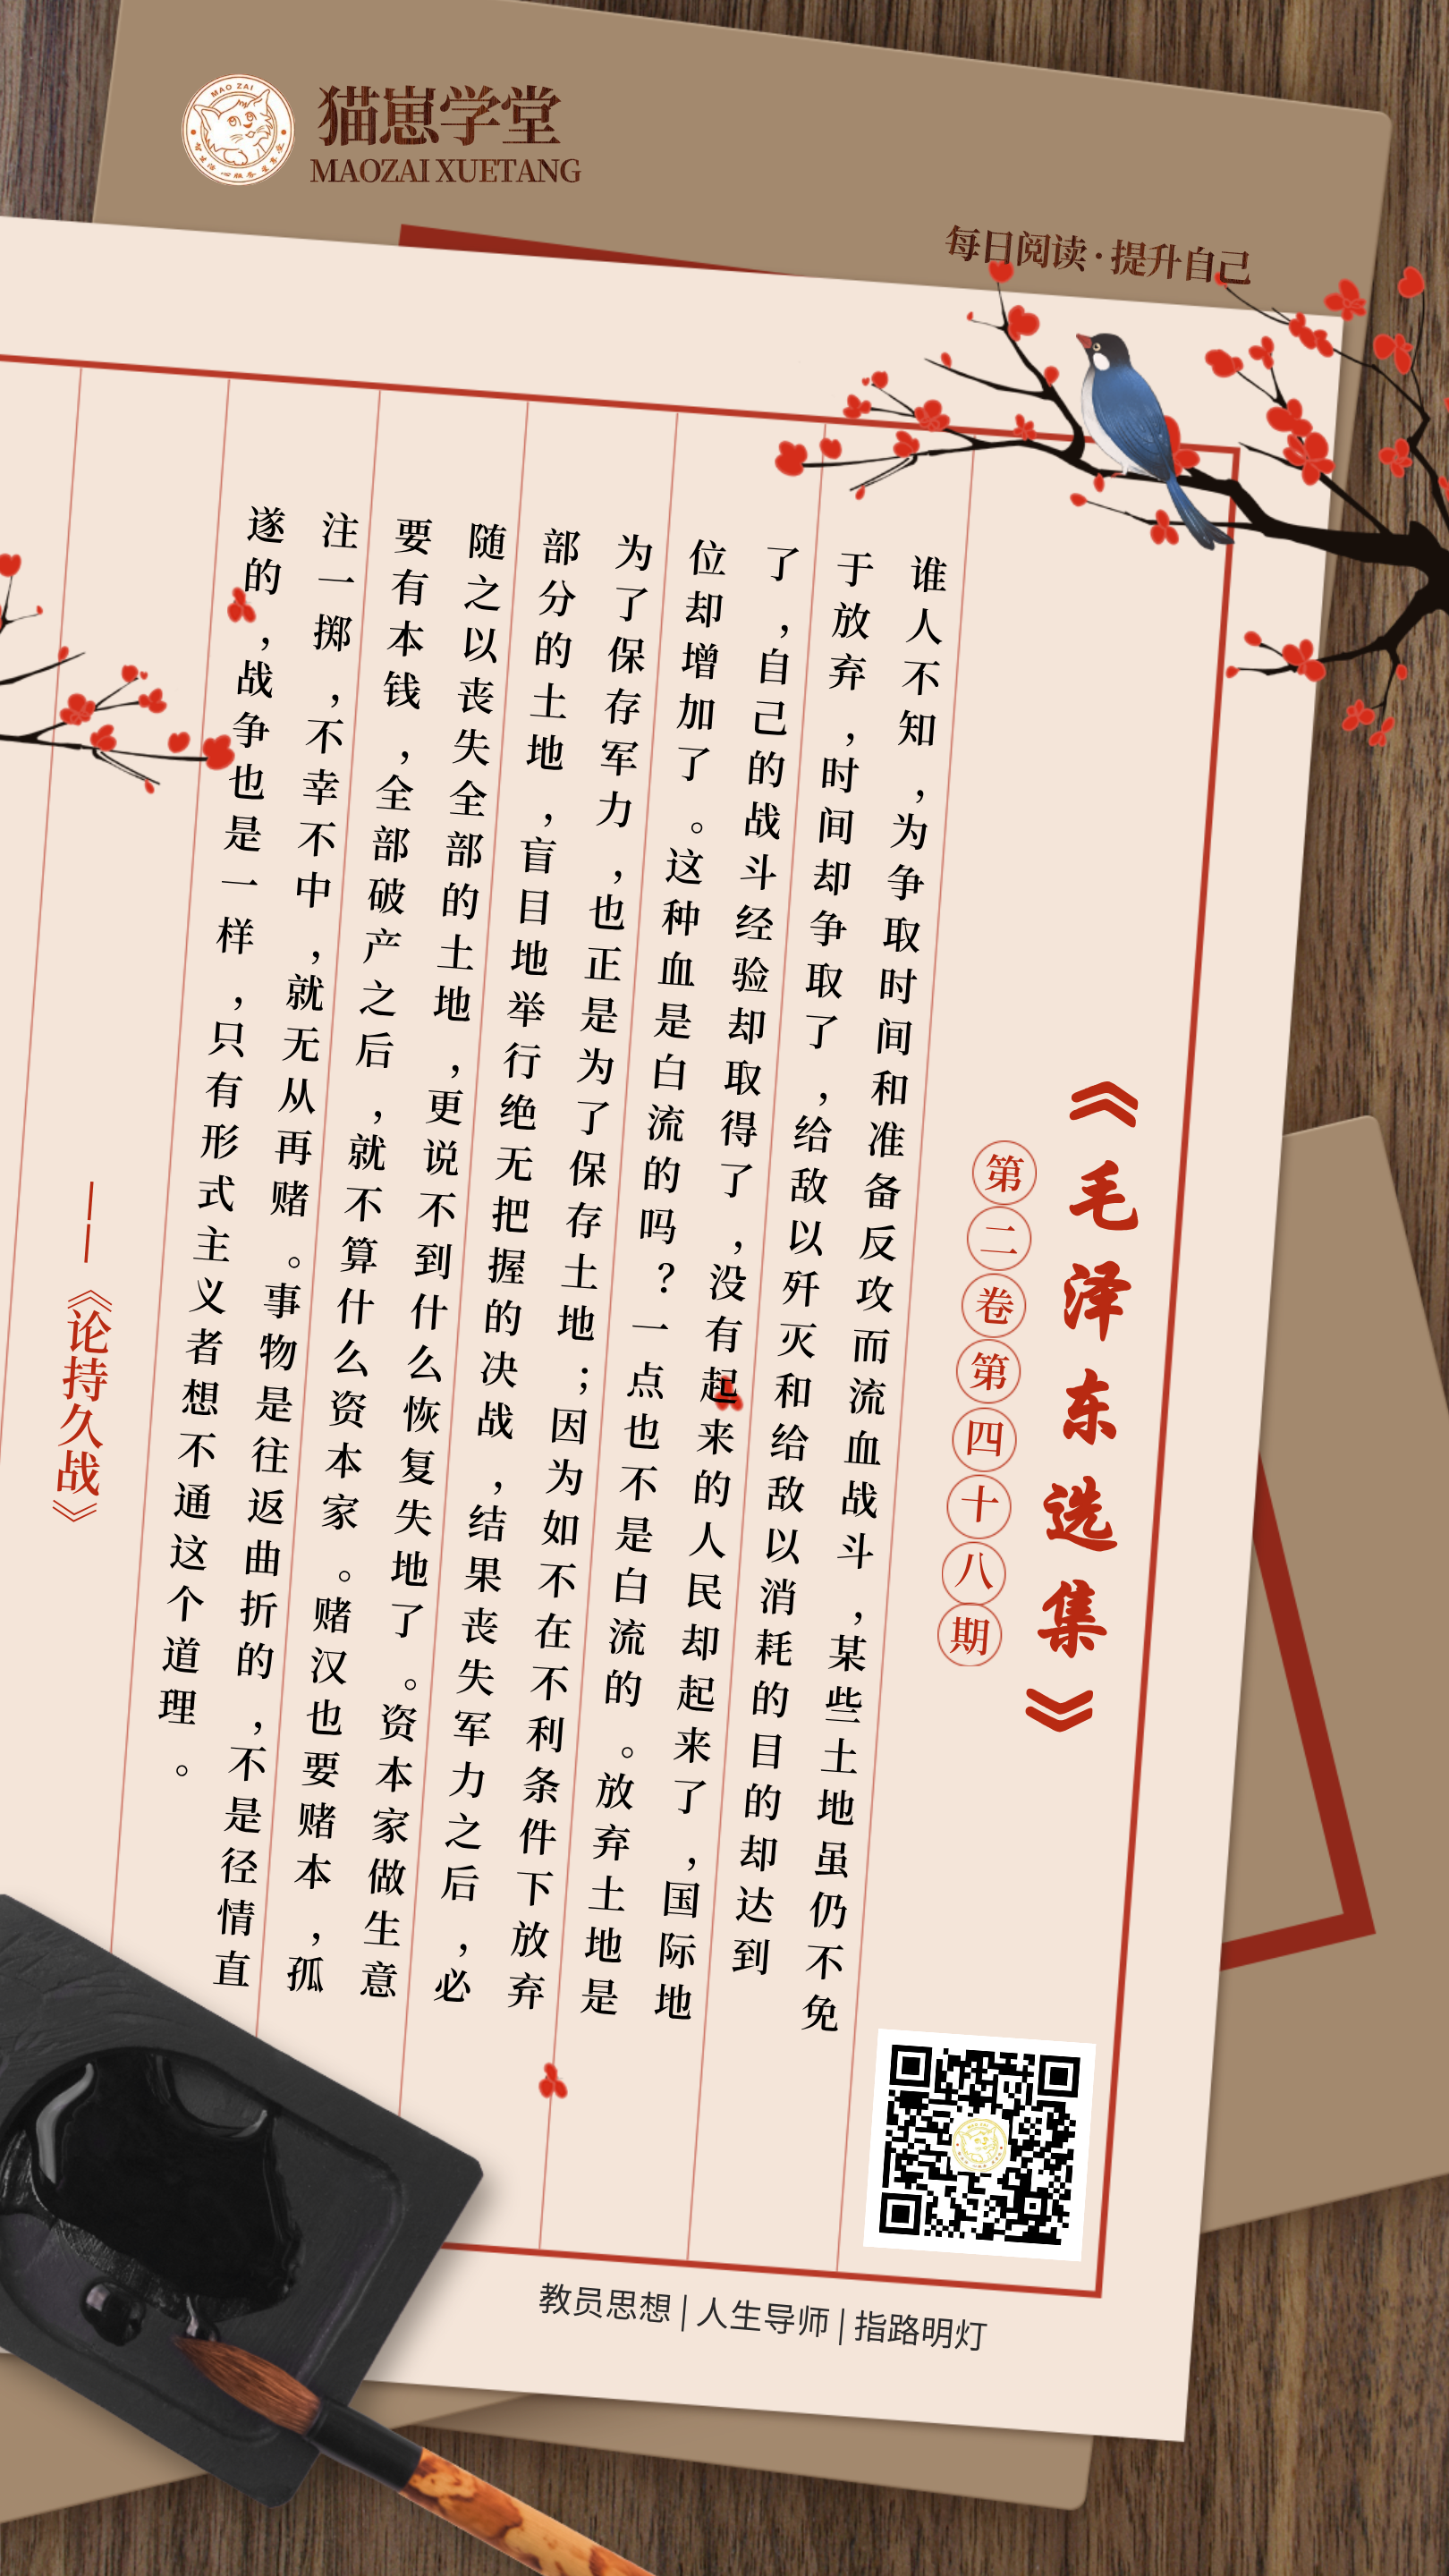 MAO ZAI
猫崽学堂
MAOZAI XUETANG
每日阅读·提升自己
《毛泽东选集》
第二卷第四十八期
谁人不知，为争取时间和准备反攻而流血战斗，某些土地虽仍不免
于放弃，时间却争取了，给敌以歼灭和给敌以消耗的目的却达到
了，自己的战斗经验却取得了，没有起来的人民却起来了，国际地
位却增加了。这种血是白流的吗？一点也不是白流的。放弃土地是
为了保存军力，也正是为了保存土地；因为如不在不利条件下放弃
部分的土地，盲目地举行绝无把握的决战，结果丧失军力之后，必
随之以丧失全部的土地，更说不到什么恢复失地了。资本家做生意
要有本钱，全部破产之后，就不算什么资本家。赌汉也要赌本，孤
注一掷，不幸不中，就无从再赌。事物是往返曲折的，不是径情直
遂的，战争也是一样，只有形式主义者想不通这个道理。
——《论持久战》
教员思想|人生导师|指路明灯